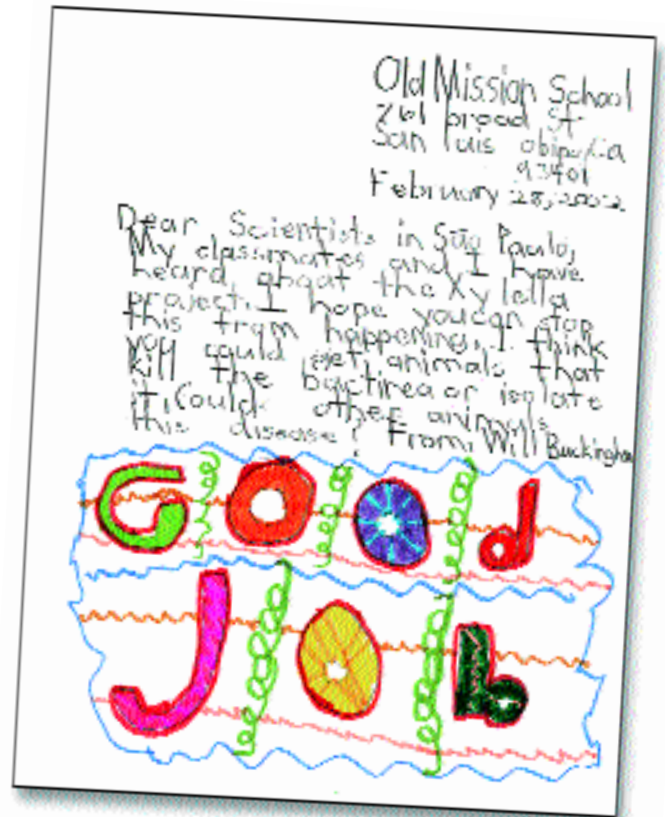 Old Mission School
761 broad st
San luis obipo, Ca
93401
February 28, 2002
Dear Scientists in São Paulo,
My classmates and I have
heard about the Xylella
project. I hope you can stop
this from happening. I think
you could get animals that
kill the bactirea or isolate
it. Could other animals
this disease? From, Will Buckingham
GOOd
JOb